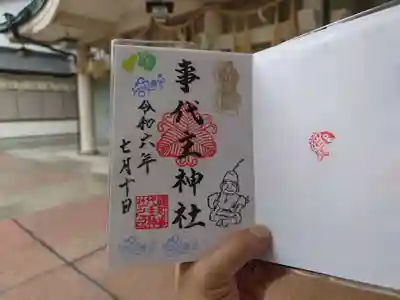 事代主神社
令和六年
七月十日